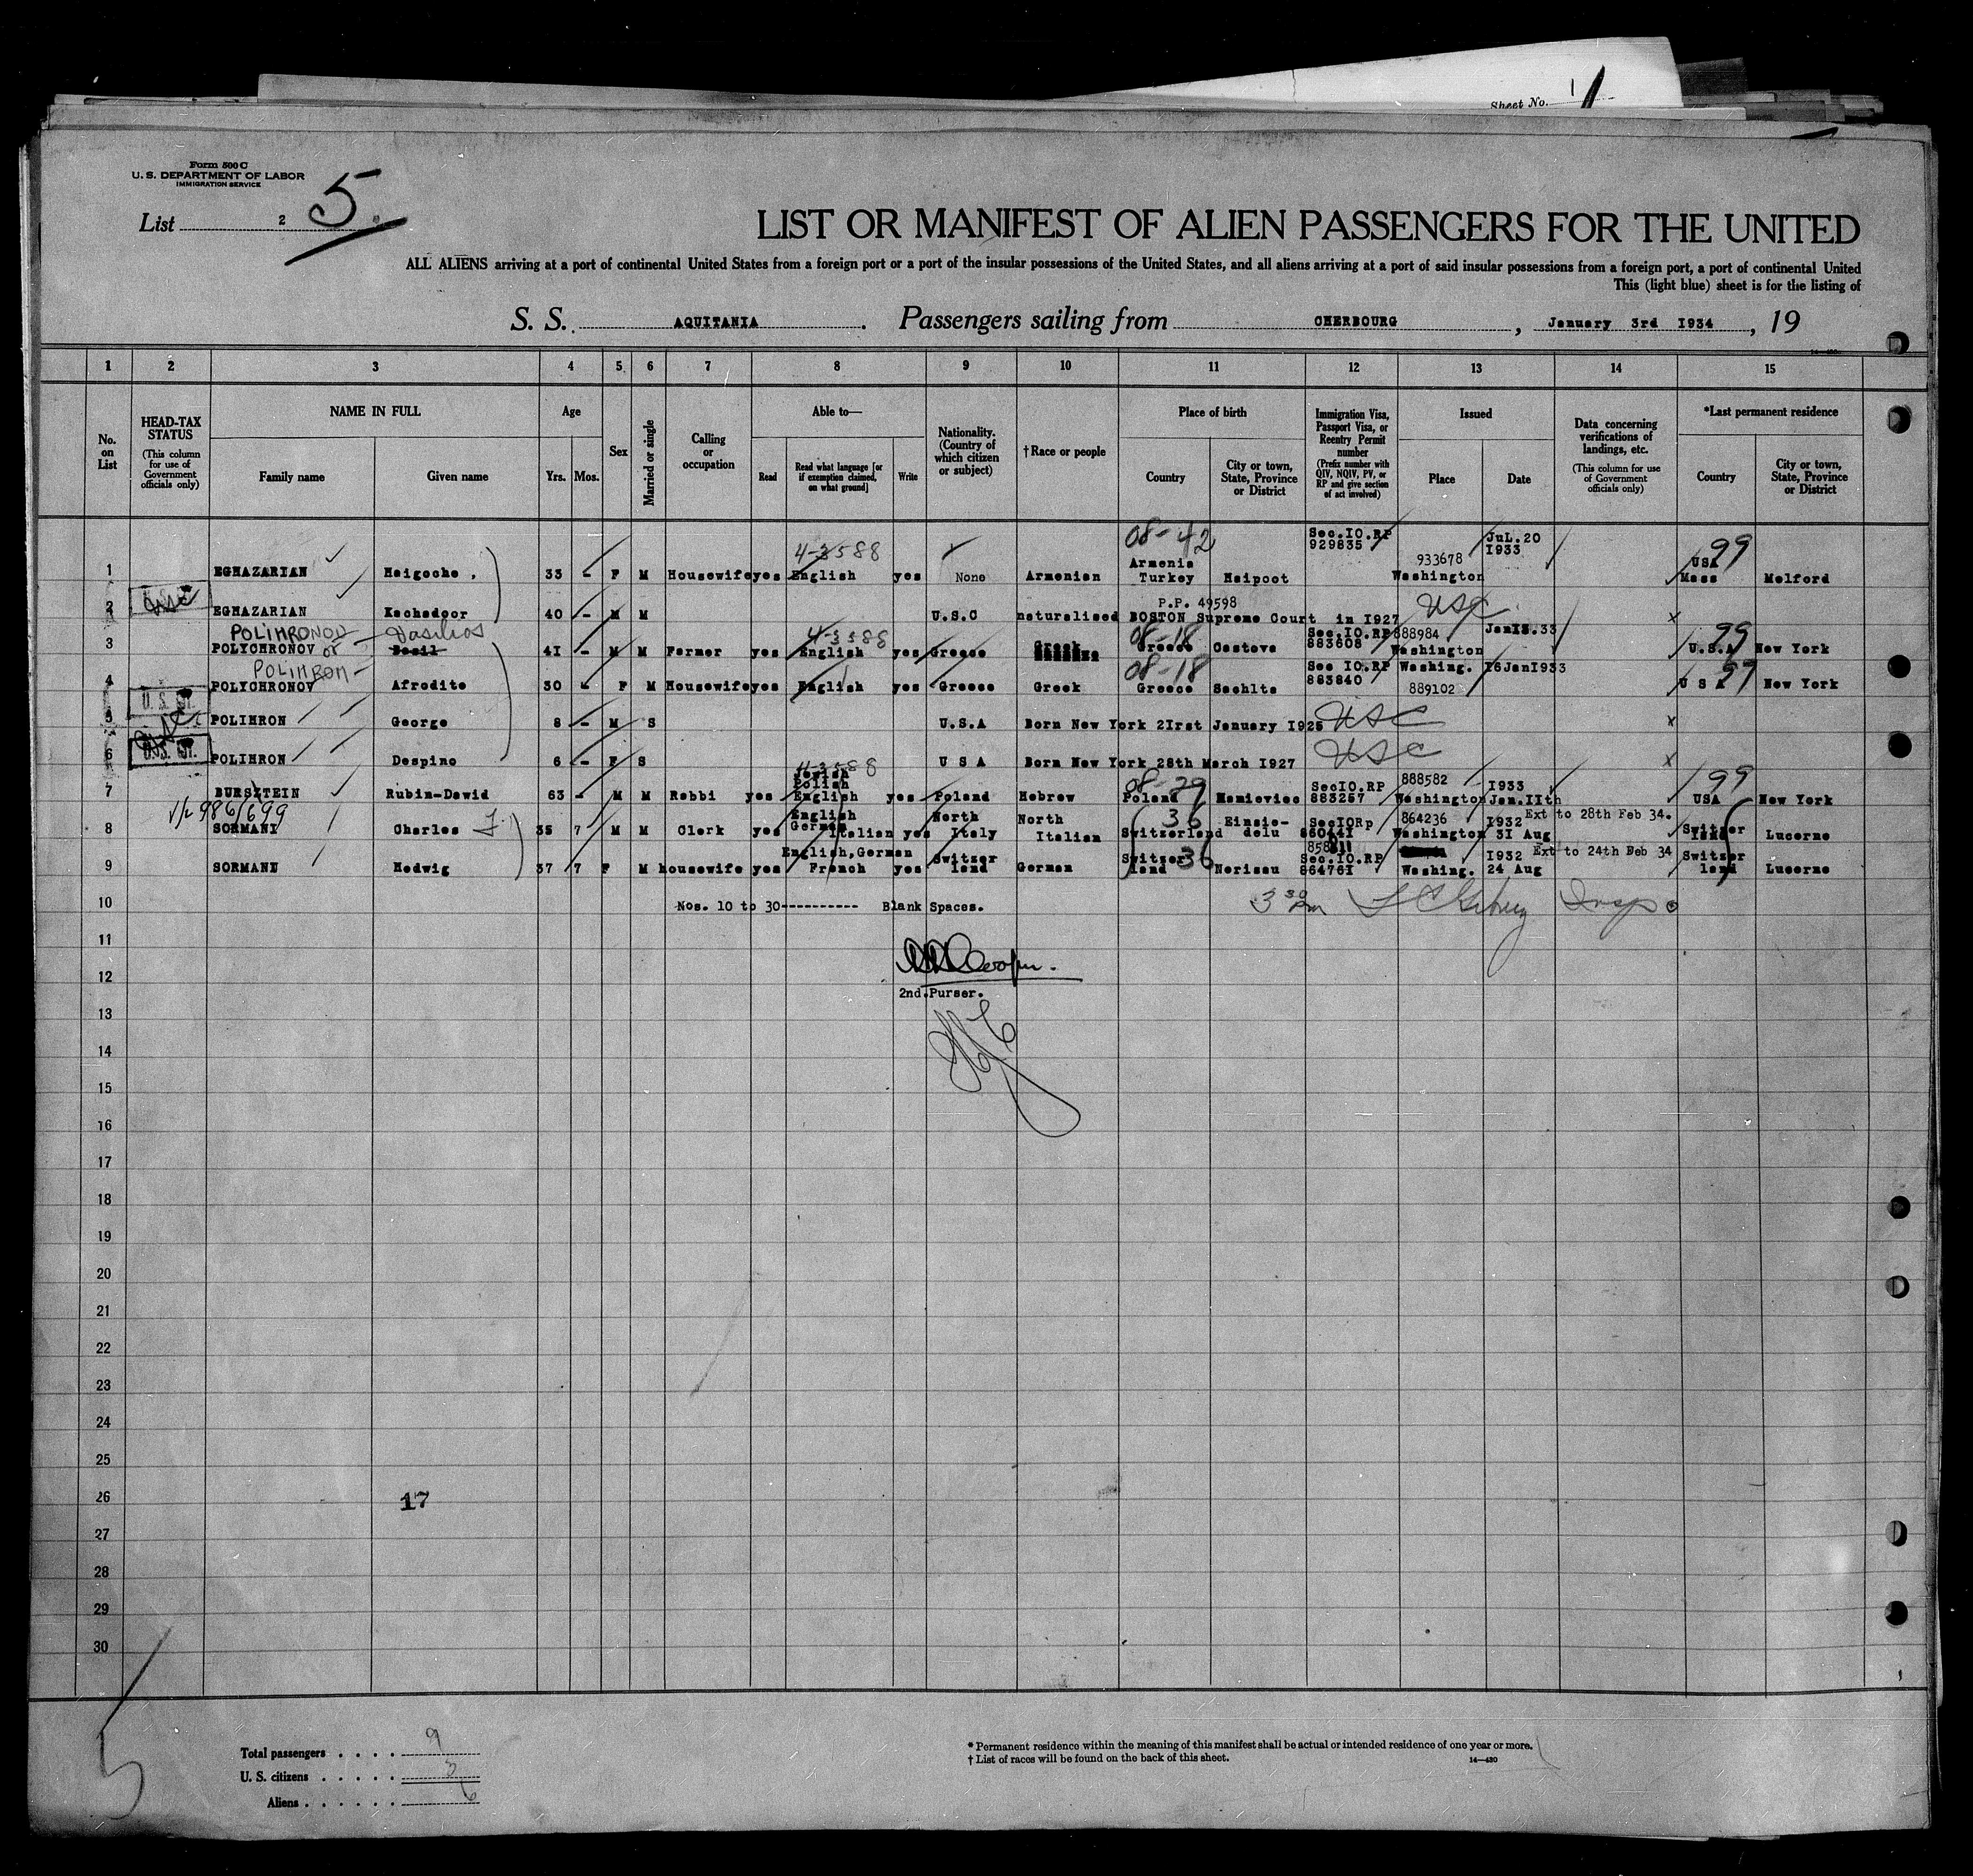 Sheet No. 1
Form 500 C
U. S. DEPARTMENT OF LABOR
IMMIGRATION SERVICE
List 2 5
LIST OR MANIFEST OF ALIEN PASSENGERS FOR THE UNITED
ALL ALIENS arriving at a port of continental United States from a foreign port or a port of the insular possessions of the United States, and all aliens arriving at a port of said insular possessions from a foreign port, a port of continental United
This (light blue) sheet is for the listing of
S. S. AQUITANIA. Passengers sailing from CHERBOURG, January 3rd I934, 19
1 2 3 4 5 6 7 8 9 10 11 12 13 14 15
No. on List
HEAD-TAX STATUS
(This column for use of Government officials only)
NAME IN FULL
Family name Given name
Age
Yrs. Mos.
Sex
Married or single
Calling or occupation
Able to—
Read
Read what language [or if exemption claimed, on what ground]
Write
Nationality. (Country of which citizen or subject)
†Race or people
Place of birth
Country
City or town, State, Province or District
Immigration Visa, Passport Visa, or Reentry Permit number
(Prefix number with QIV, NQIV, PV, or RP and give section of act involved)
Issued
Place Date
Data concerning verifications of landings, etc.
(This column for use of Government officials only)
*Last permanent residence
Country
City or town, State, Province or District
4-3588 08-42 Sec.IO.RP JuL.20 99
929835 933678 I933 USA
Armenia
1 EGHAZARIAN Heigoohe, 33 - F M Housewife yes English yes None Armenian Turkey Haipoot Washington Mass Melford
P.P. 49598 USC
2 USC EGHAZARIAN Kachadoor 40 - M M U.S.C naturalised BOSTON Supreme Court in I927 x
POLIHRONOV Vasilios 4-3588 08-18 Sec.IO.RP 888984 Jan I3.33 99
3 POLYCHRONOV or Basil 4I - M M Farmer yes English yes Greece Greek Greece Castova 883608 Washington U.S.A New York
POLIHRON 08-18 Sec IO.RP Washing. I6JanI933 99
4 POLYCHRONOV Afrodite 30 - F M Housewife yes English yes Greece Greek Greece Sachlta 883840 889102 U S A New York
U. S.
5 POLIHRON George 8 - M S U.S.A Born New York 2Irst January I925 USC x
USC
6 POLIHRON Despino 6 - F S U S A Born New York 28th March I927 USC x
4-3588
Jewish
Polish 08-29 SecIO.RP 888582 I933 99
7 BURSZTEIN Rubin-Dawid 63 - M M Rabbi yes English yes Poland Hebrew Poland 883257 Washington Jan.IIth USA New York
986/699 English North North 36 Einsie- SecIORp 864236 I932 Ext to 28th Feb 34.
German
8 SORMANI Charles F. 35 7 M M Clerk yes Italian yes Italy Italian Switzerland delu 86044I Washington 3I Aug Switzer land Lucerne
English, German Switzer Switzer 36 Sec.IO.RP I932 Ext to 24th Feb 34 Switzer
9 SORMANI Hedwig 37 7 F M housewife yes French yes land German land Herisau 86476I Washing. 24 Aug land Lucerne
10 Nos. 10 to 30---------- Blank Spaces. 3 30 pm Insp
11
Cooper.
12
2nd.Purser.
13
14
15
16
17
18
19
20
21
22
23
24
25
26 17
27
28
29
30
Total passengers . . . . 9
U. S. citizens . . . . . 3
Aliens . . . . . . 6
* Permanent residence within the meaning of this manifest shall be actual or intended residence of one year or more.
† List of races will be found on the back of this sheet. 14—430